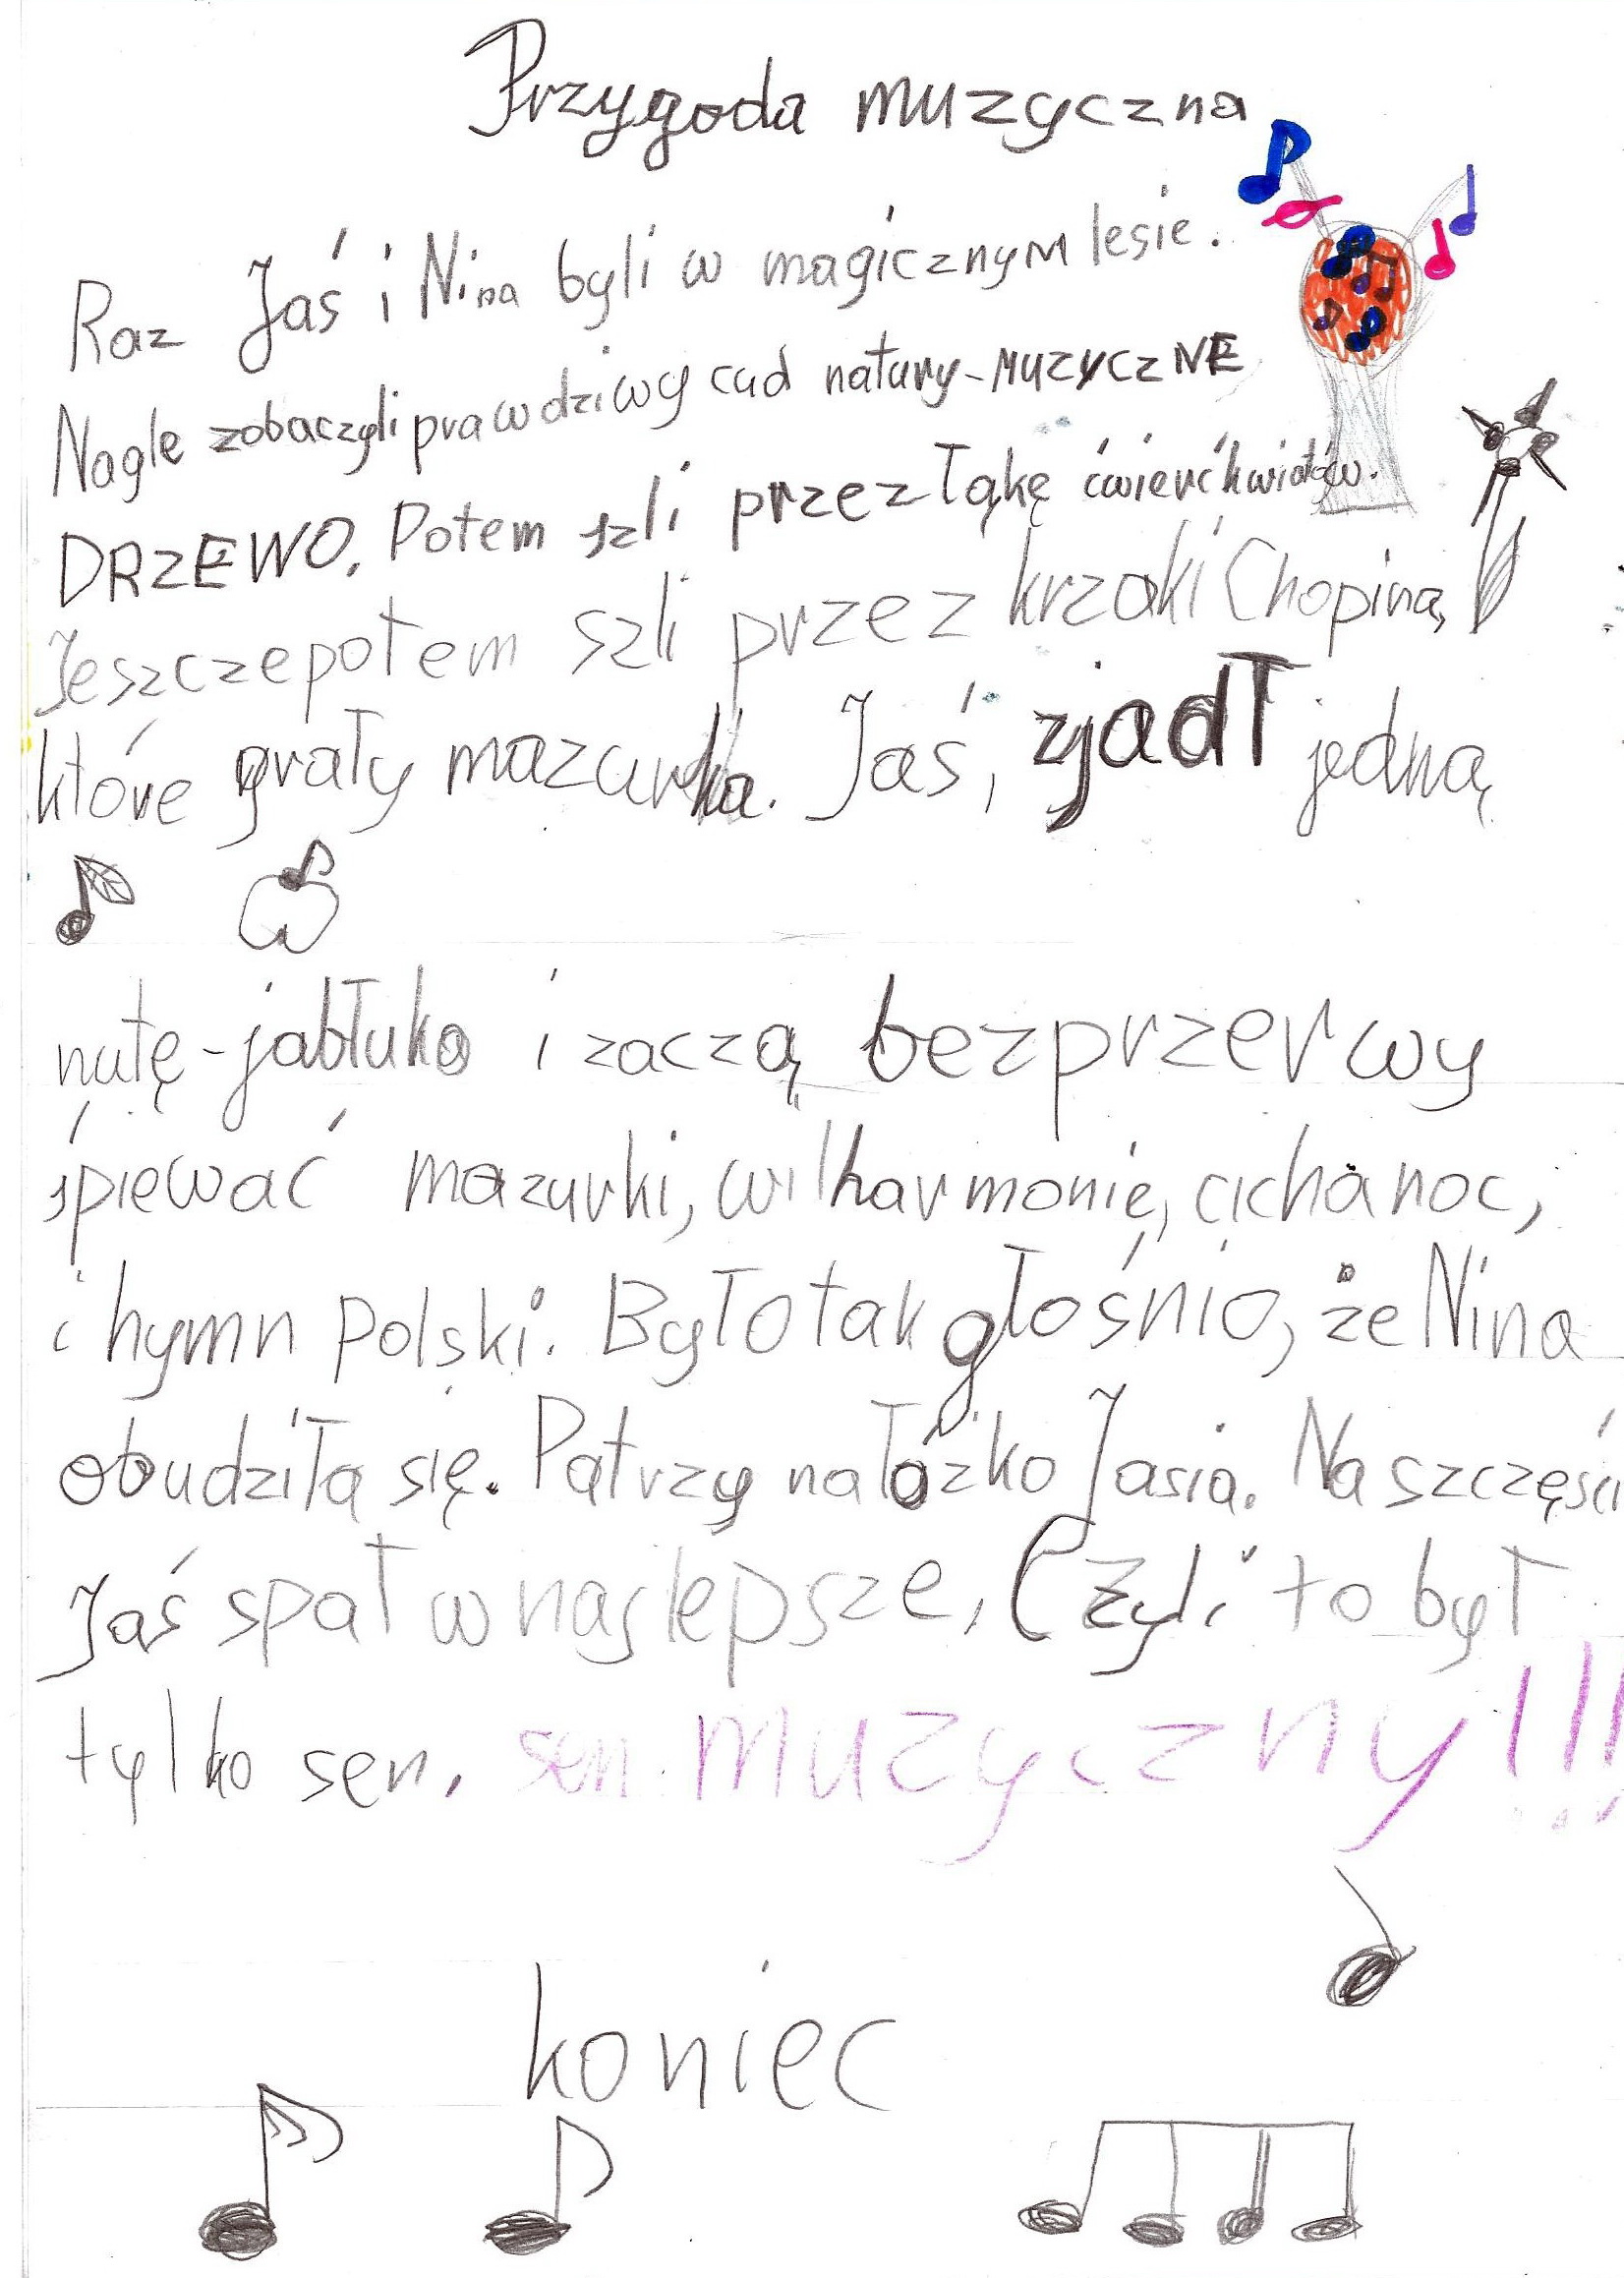 Przygoda muzyczna
Raz Jaś i Nina byli w magicznym lesie.
Nagle zobaczyli prawdziwy cud natury-MUZYCZNE
DRZEWO. Potem szli przez łąkę ćwierćkwiatów.
Jeszcze potem szli przez krzaki Chopina,
które grały mazurka. Jaś, zjadł jedną
nutę-jabłuko i zaczą bezprzerwy
śpiewać mazurki, wilharmonię, cicha noc,
i hymn polski. Było tak głośnio, że Nina
obudziła się. Patrzy na łóżko Jasia. Na szczęści
Jaś spał w najlepsze, Czyli to był
tylko sen, sen muzyczny!!!
koniec